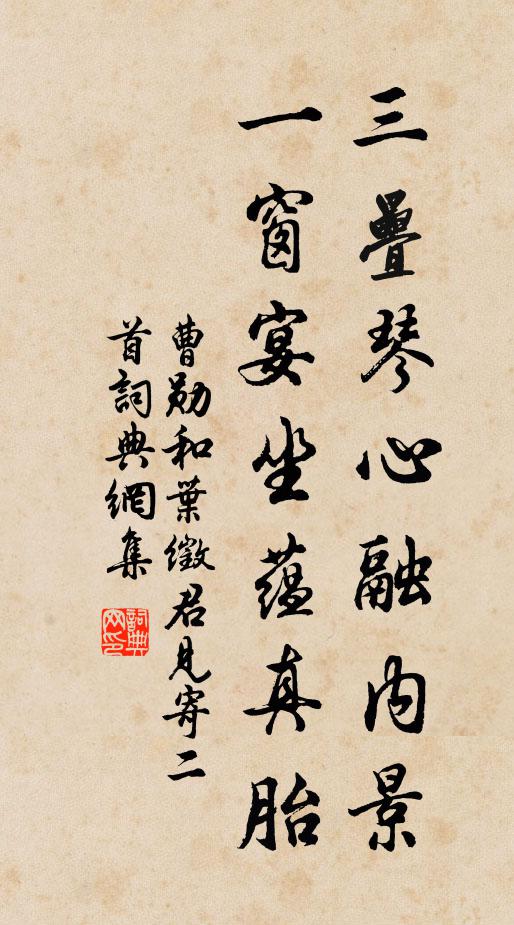 三疊琴心融内景
一窗宴坐蘊真胎
曹勛和葉徵君見寄二
首詞典網集
詞典
网印